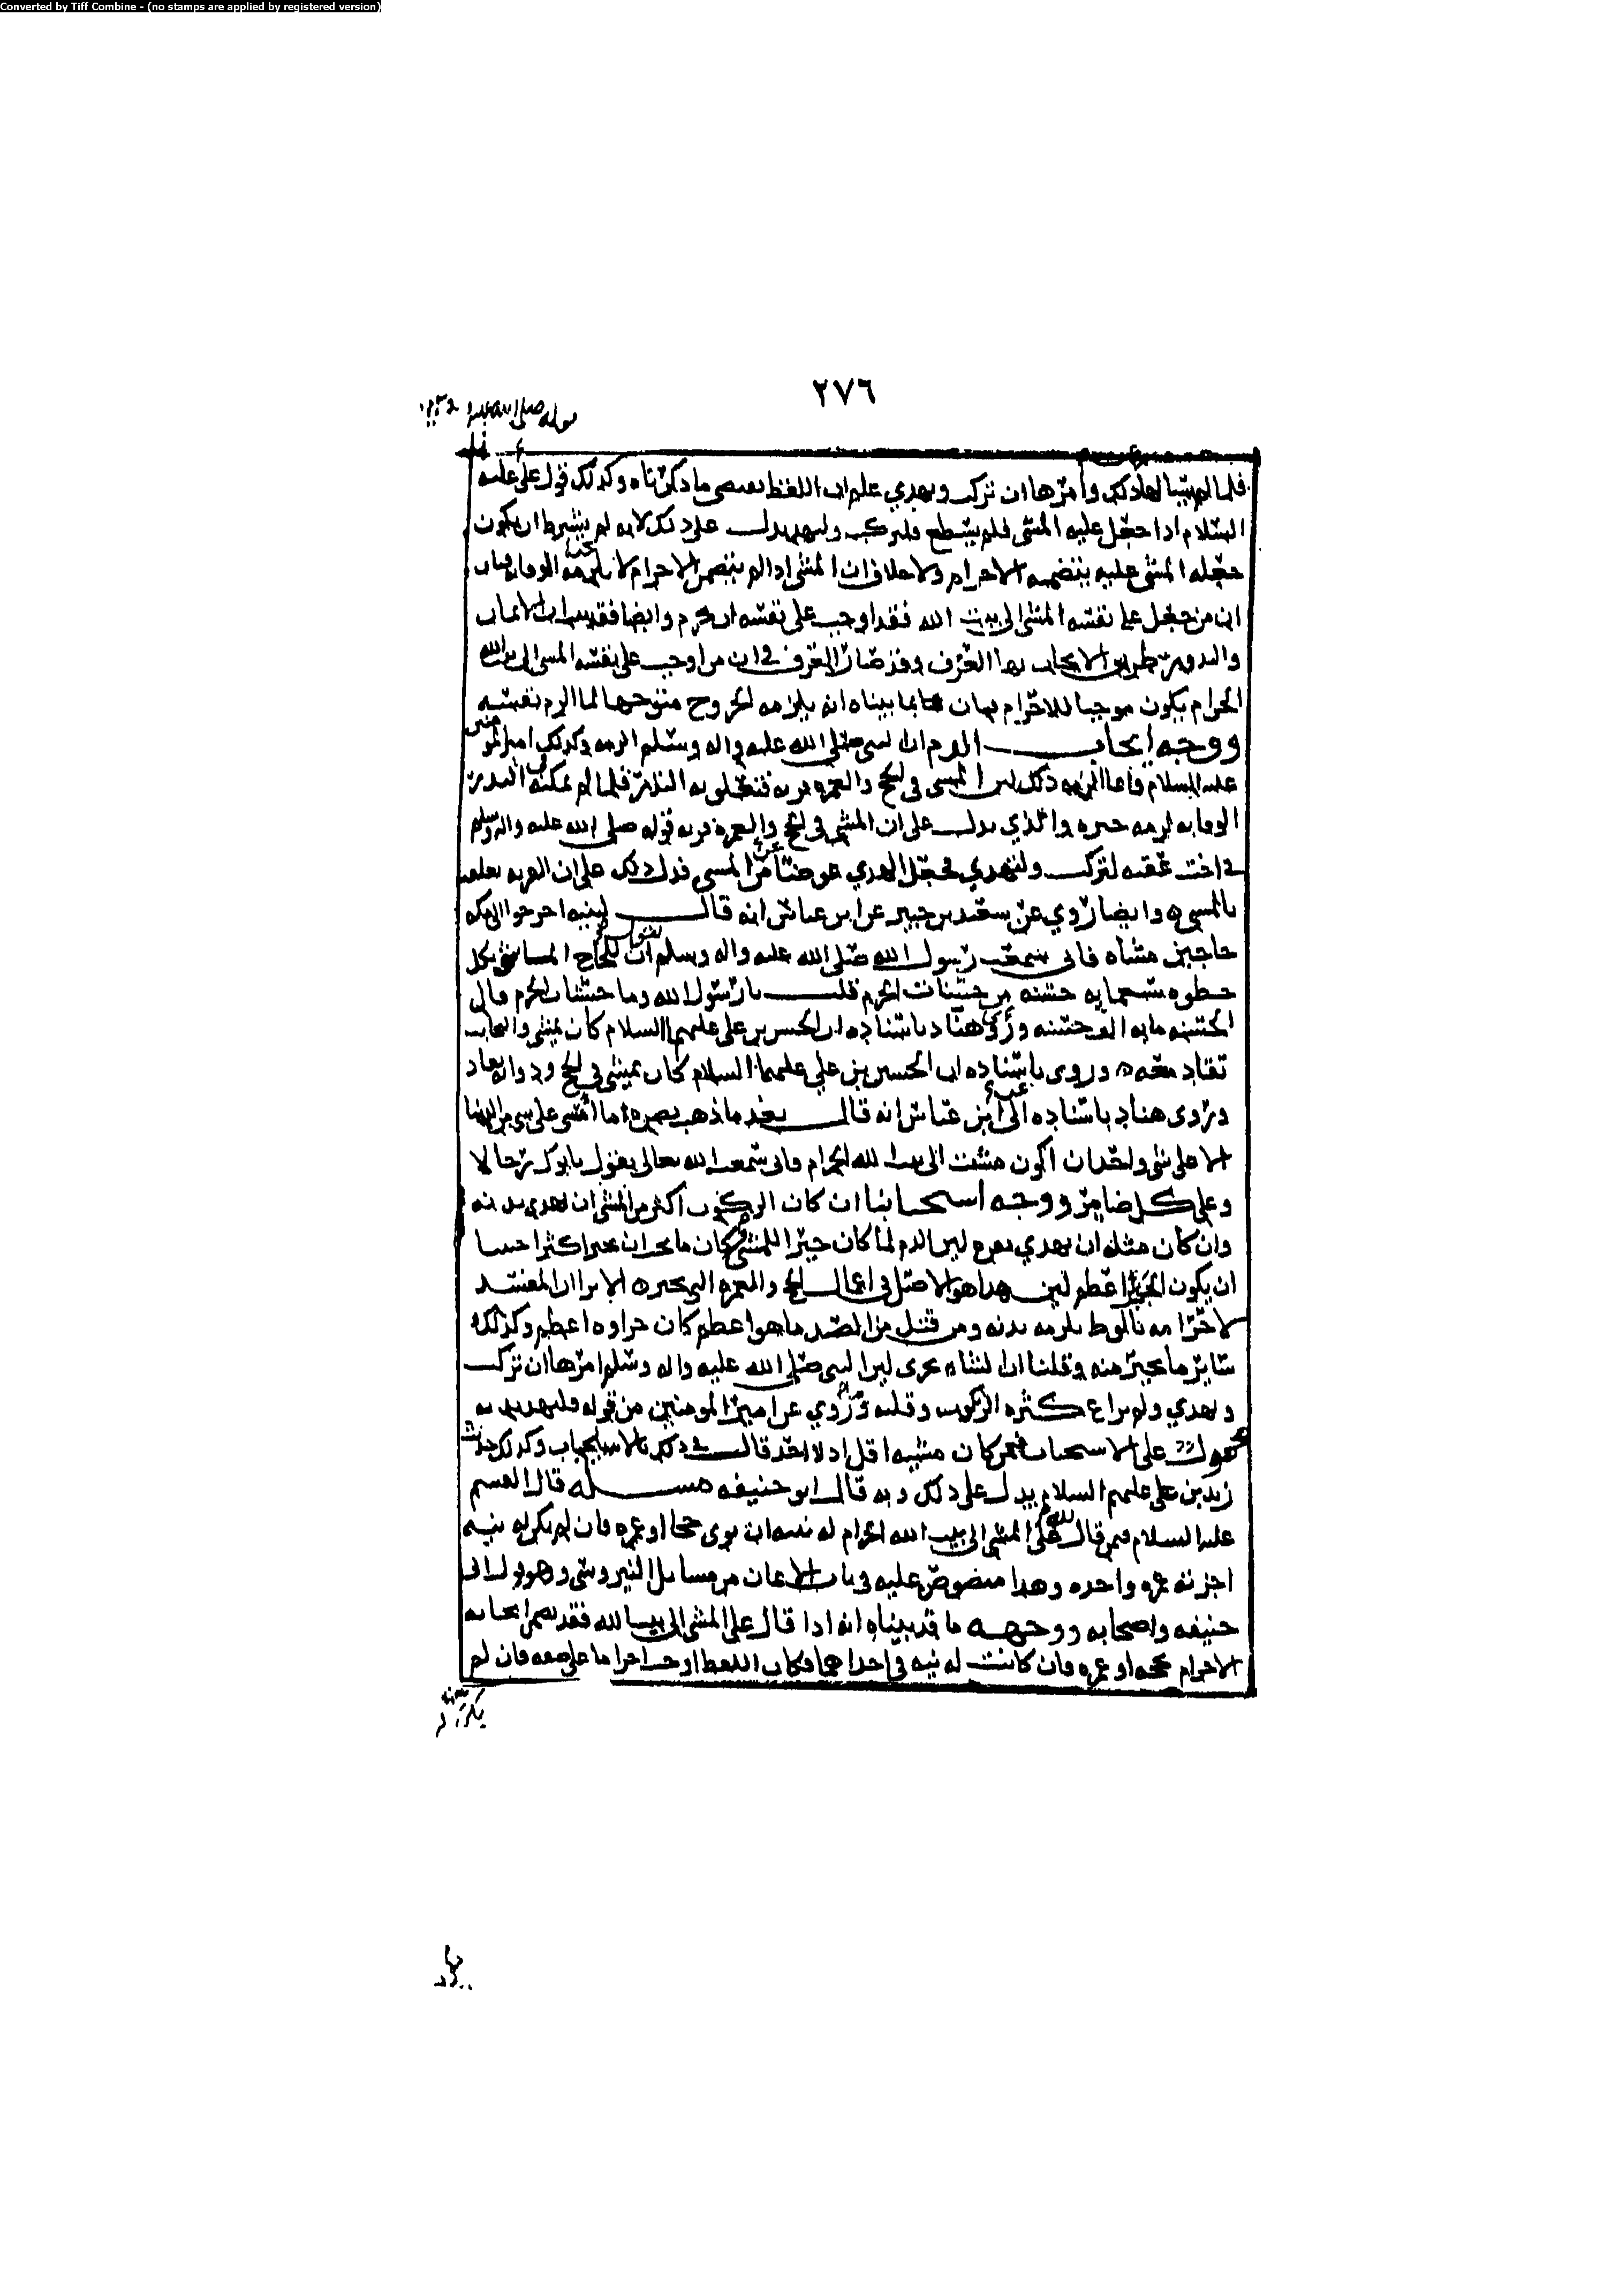 Converted by Tiff Combine - (no stamps are applied by registered version)
٢٧٦
قوله صلى الله عليه
فلما لم يبينا لها ذلك وأمرها ان تركب وتهدي علم ان اللفظ يقتضي ما ذكرناه وكذلك قول علي عليه
السلام اذا جعل عليه المشي فلم يستطع فليركب وليهد يدل على ذلك لانه لم يشترط ان يكون
جعله المشي عليه يتضمنه الاحرام ولا خلاف ان المشي اذا لم يتضمن الاحرام لا يلزمه الوفا به فبان
ان من جعل على نفسه المشي الى بيت الله فقد اوجب على نفسه ان يحرم وايضا فقد ان الايمان
والنذور طريق الايجاب بها العرف وقد صار العرف في ان من اوجب على نفسه المشي الى بيت الله
الحرام يكون موجبا للاحرام فبان بما بيناه انه يلزمه الخروج متوجها لما الزم نفسه
ووجه ايجاب الدم ان النبي صلى الله عليه واله وسلم الزمه وكذلك امير المومنين
عليه السلام فانما الزمه ذلك لان المشي في الحج والعمرة قربه فتعلق به النذر فلما لم يمكنه
الوفا به لزمه جبره والذي يدل على ان المشي في الحج والعمره قربه قوله صلى الله عليه واله وسلم
في اخت عقبه لتركب ولتهدي فجعل الهدي عوضا من المشي فدل ذلك على ان القربه تعلقت
بالمشي وايضا روي عن سعيد بن جبير عن ابن عباس انه قال لبنيه اخرجوا الى مكه
حاجين مشاه فاني سمعت رسول الله صلى الله عليه واله وسلم يقول ان للحاج الماشي بكل
خطوه سبعمايه حسنه من حسنات الحرم قلت يا رسول الله وما حسنات الحرم قال
الحسنه مايه الف حسنه وروى هناد باسناده ان الحسن بن علي عليهما السلام كان يمشي والنجايب
تقاد معه وروى باسناده ان الحسين بن علي عليهما السلام كان يمشي في الحج ودوابه تقاد
وروى هناد باسناده الى ابن عباس انه قال بعد ما ذهب بصره ما اسى على شي من الدنيا
الا على شي واحد ان اكون مشيت الى بيت الله الحرام فاني سمعت الله تعالى يقول ياتوك رجالا
وعلى كل ضامر ووجه استحبابنا ان كان الركوب اكثر من المشي ان يهدي بدنه
وان كان مثله ان يهدي بقره لان الدم لما كان جبرا للمشي فكان ما يجب ان يجبر اكثر احببنا
ان يكون الجبر اعظم لان هذا هو الاصل في اعمال الحج والعمره التي تجبره الا ترا ان المفسد
لاحرامه بالوطي يلزمه بدنه ومن قتل من الصيد ما هو اعظم كان جزاوه اعظم وكذلك
ساير ما يجبر منه وقلنا ان الشاه تجزي لان النبي صلى الله عليه واله وسلم امرها ان تركب
وتهدي ولم يراع كثره الركوب وقلته وروي عن امير المومنين من قوله وليهد بدنه
محمول على الاستحباب فيمن كان مشيه اقل اذ لا احد قال في ذلك بالايجاب وكذلك حديث
زيد بن علي عليهم السلام يدل على ذلك وبه قال ابو حنيفه مسـله قال القسم
عليه السلام فيمن قال لله علي المشي الى بيت الله الحرام له نيته ان نوى حجا او عمره فان لم يكن له نيه
اجزته عمره واحده وهذا منصوص عليه في باب الايمان من مسايل النيروسي وهو قول ابي
حنيفه واصحابه ووجهه ما قد بيناه انه اذا قال علي المشي الى بيت الله فقد تضمن ايجابه
الاحرام بحجه او عمره فان كانت له نيه في احداهما وكان اللفظ اوجب احراما على صفه فان لم
يكن له نيه